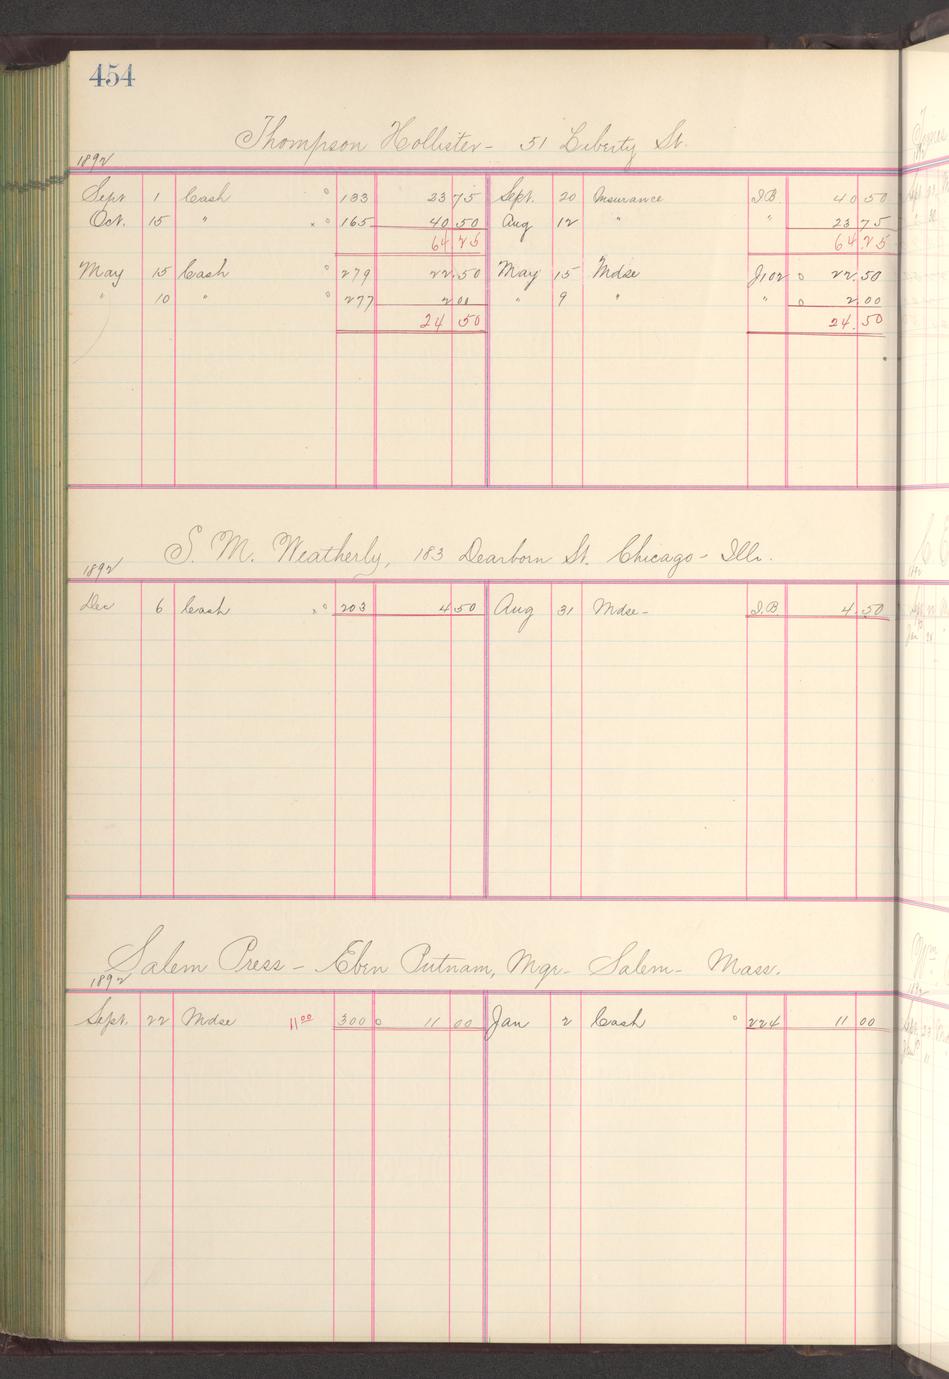 454
Thompson Hollister - 51 Liberty St.
1892
Sept 1 Cash ° 133 23 75 Sept. 20 Insurance I.B. 40 50
Oct. 15 " × ° 165 40 50 Aug 12 " " 23 75
64 25 64.25
May 15 Cash ° 279 22.50 May 15 Mdse J102 o 22.50
" 10 " ° 277 2 00 " 9 " " o 2.00
24 50 24.50
S. M. Weatherly, 183 Dearborn St. Chicago - Ill.
1892
Dec 6 Cash × ° 203 4 50 Aug 31 Mdse - I.B. 4.50
Salem Press - Eben Putnam, Mgr - Salem - Mass.
1892
Sept. 22 Mdse 11 00 300 o 11 00 Jan 2 Cash ° 224 11 00